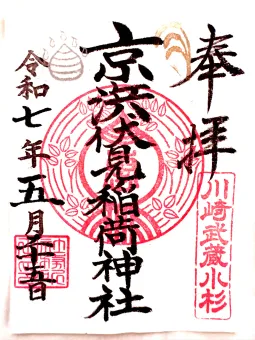 奉拝
川崎武蔵小杉
京浜伏見稲荷神社
令和七年五月十五日